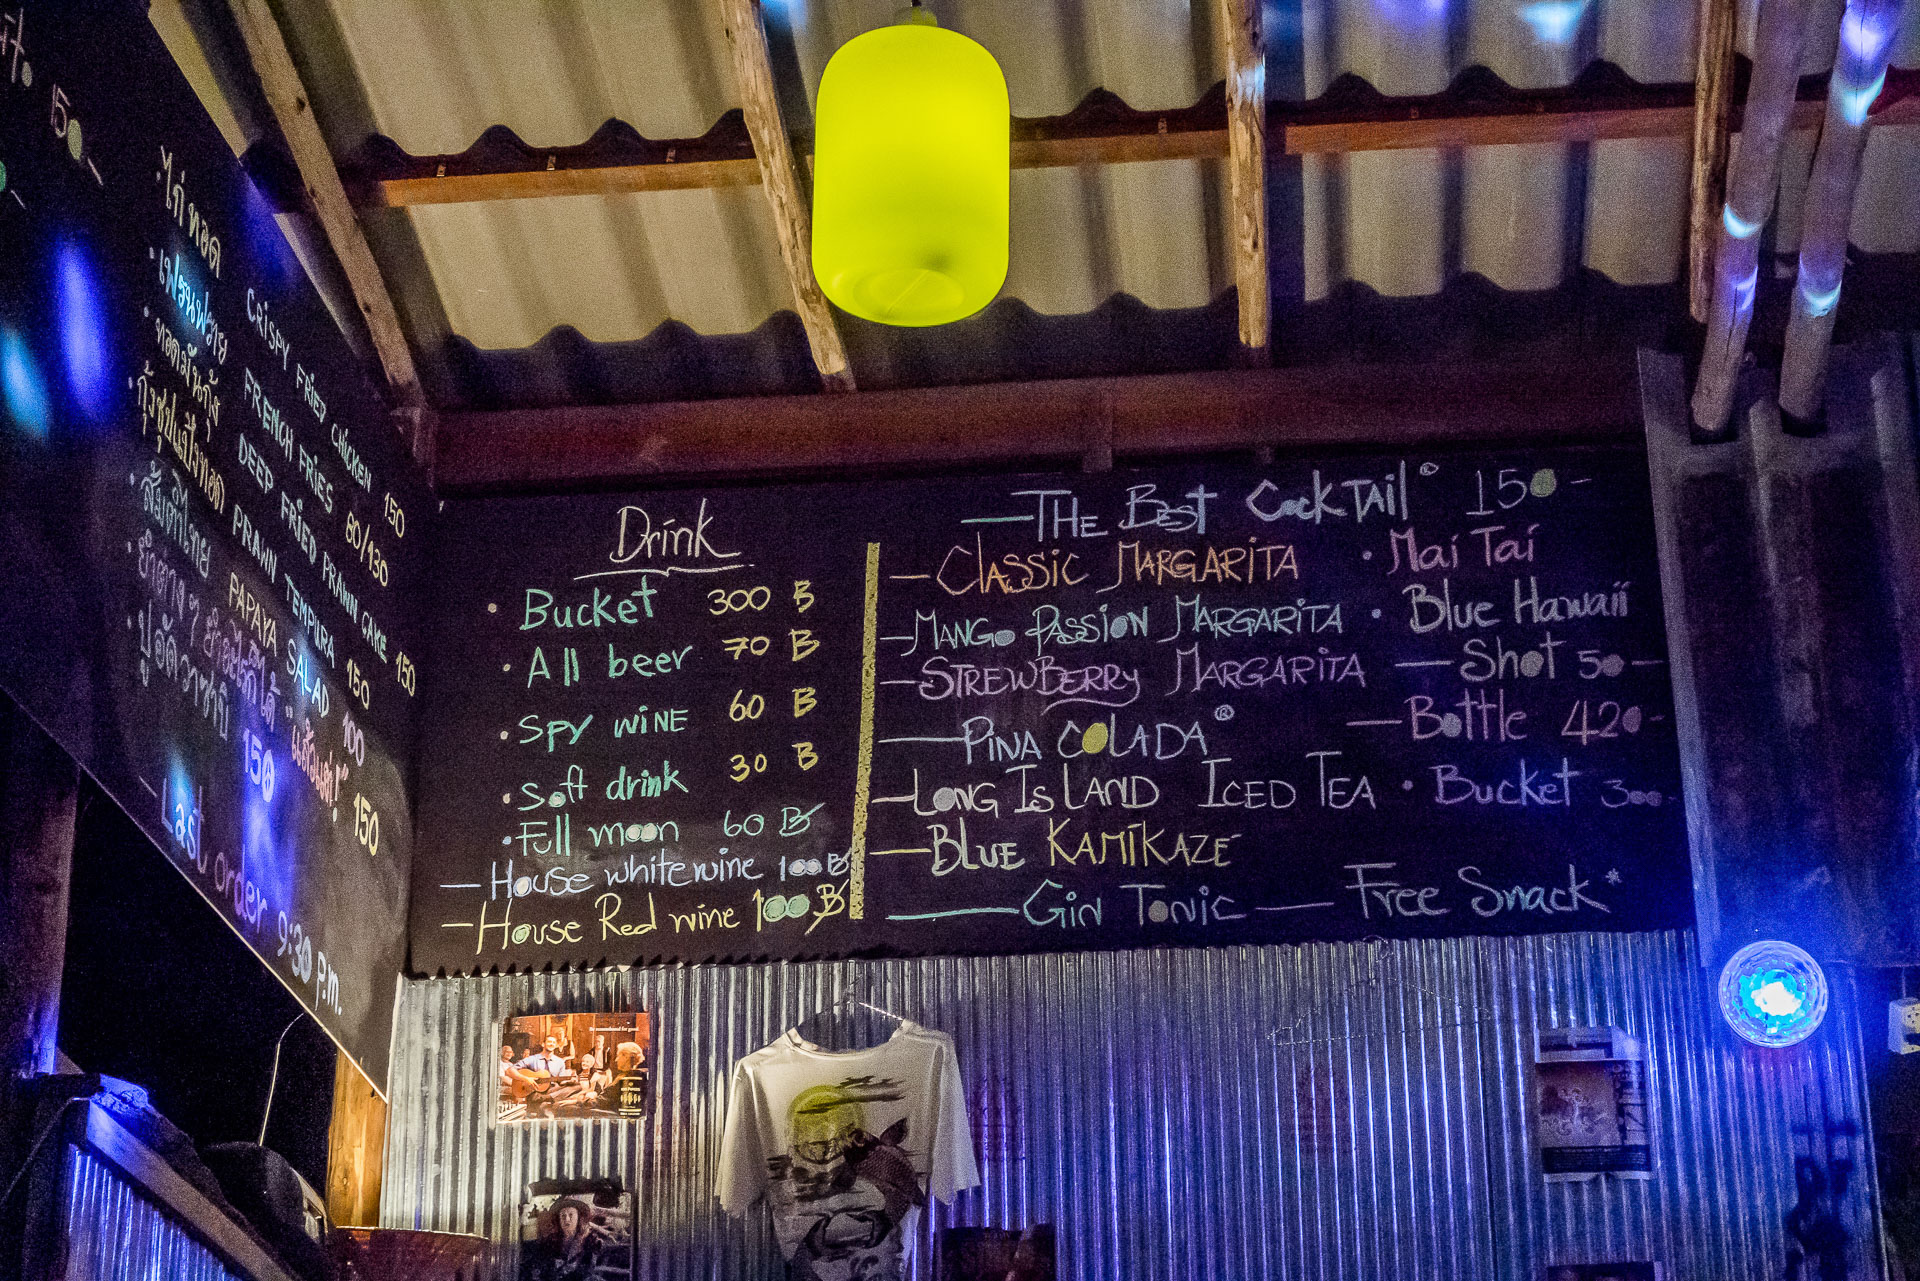 150
ไก่ทอด CRISPY FRIED CHICKEN 150
เฟรนฟราย FRENCH FRIES 80/130
ทอดมันกุ้ง DEEP FRIED PRAWN CAKE 150
กุ้งชุบแป้งทอด PRAWN TEMPURA 150
ส้มตำไทย PAPAYA SALAD 100
150
150
Last order 9:30 p.m.
Drink
Bucket 300 B
All beer 70 B
SPY WINE 60 B
Soft drink 30 B
Full moon 60 B
House white wine 100 B
House Red wine 100 B
THE BEST COCKTAIL 150-
CLASSIC MARGARITA • Mai Tai
MANGO PASSION MARGARITA • Blue Hawaii
STREWBERRY MARGARITA — Shot 50-
PINA COLADA — Bottle 420-
LONG ISLAND ICED TEA • Bucket 300-
BLUE KAMIKAZE
GIN TONIC — Free Snack*